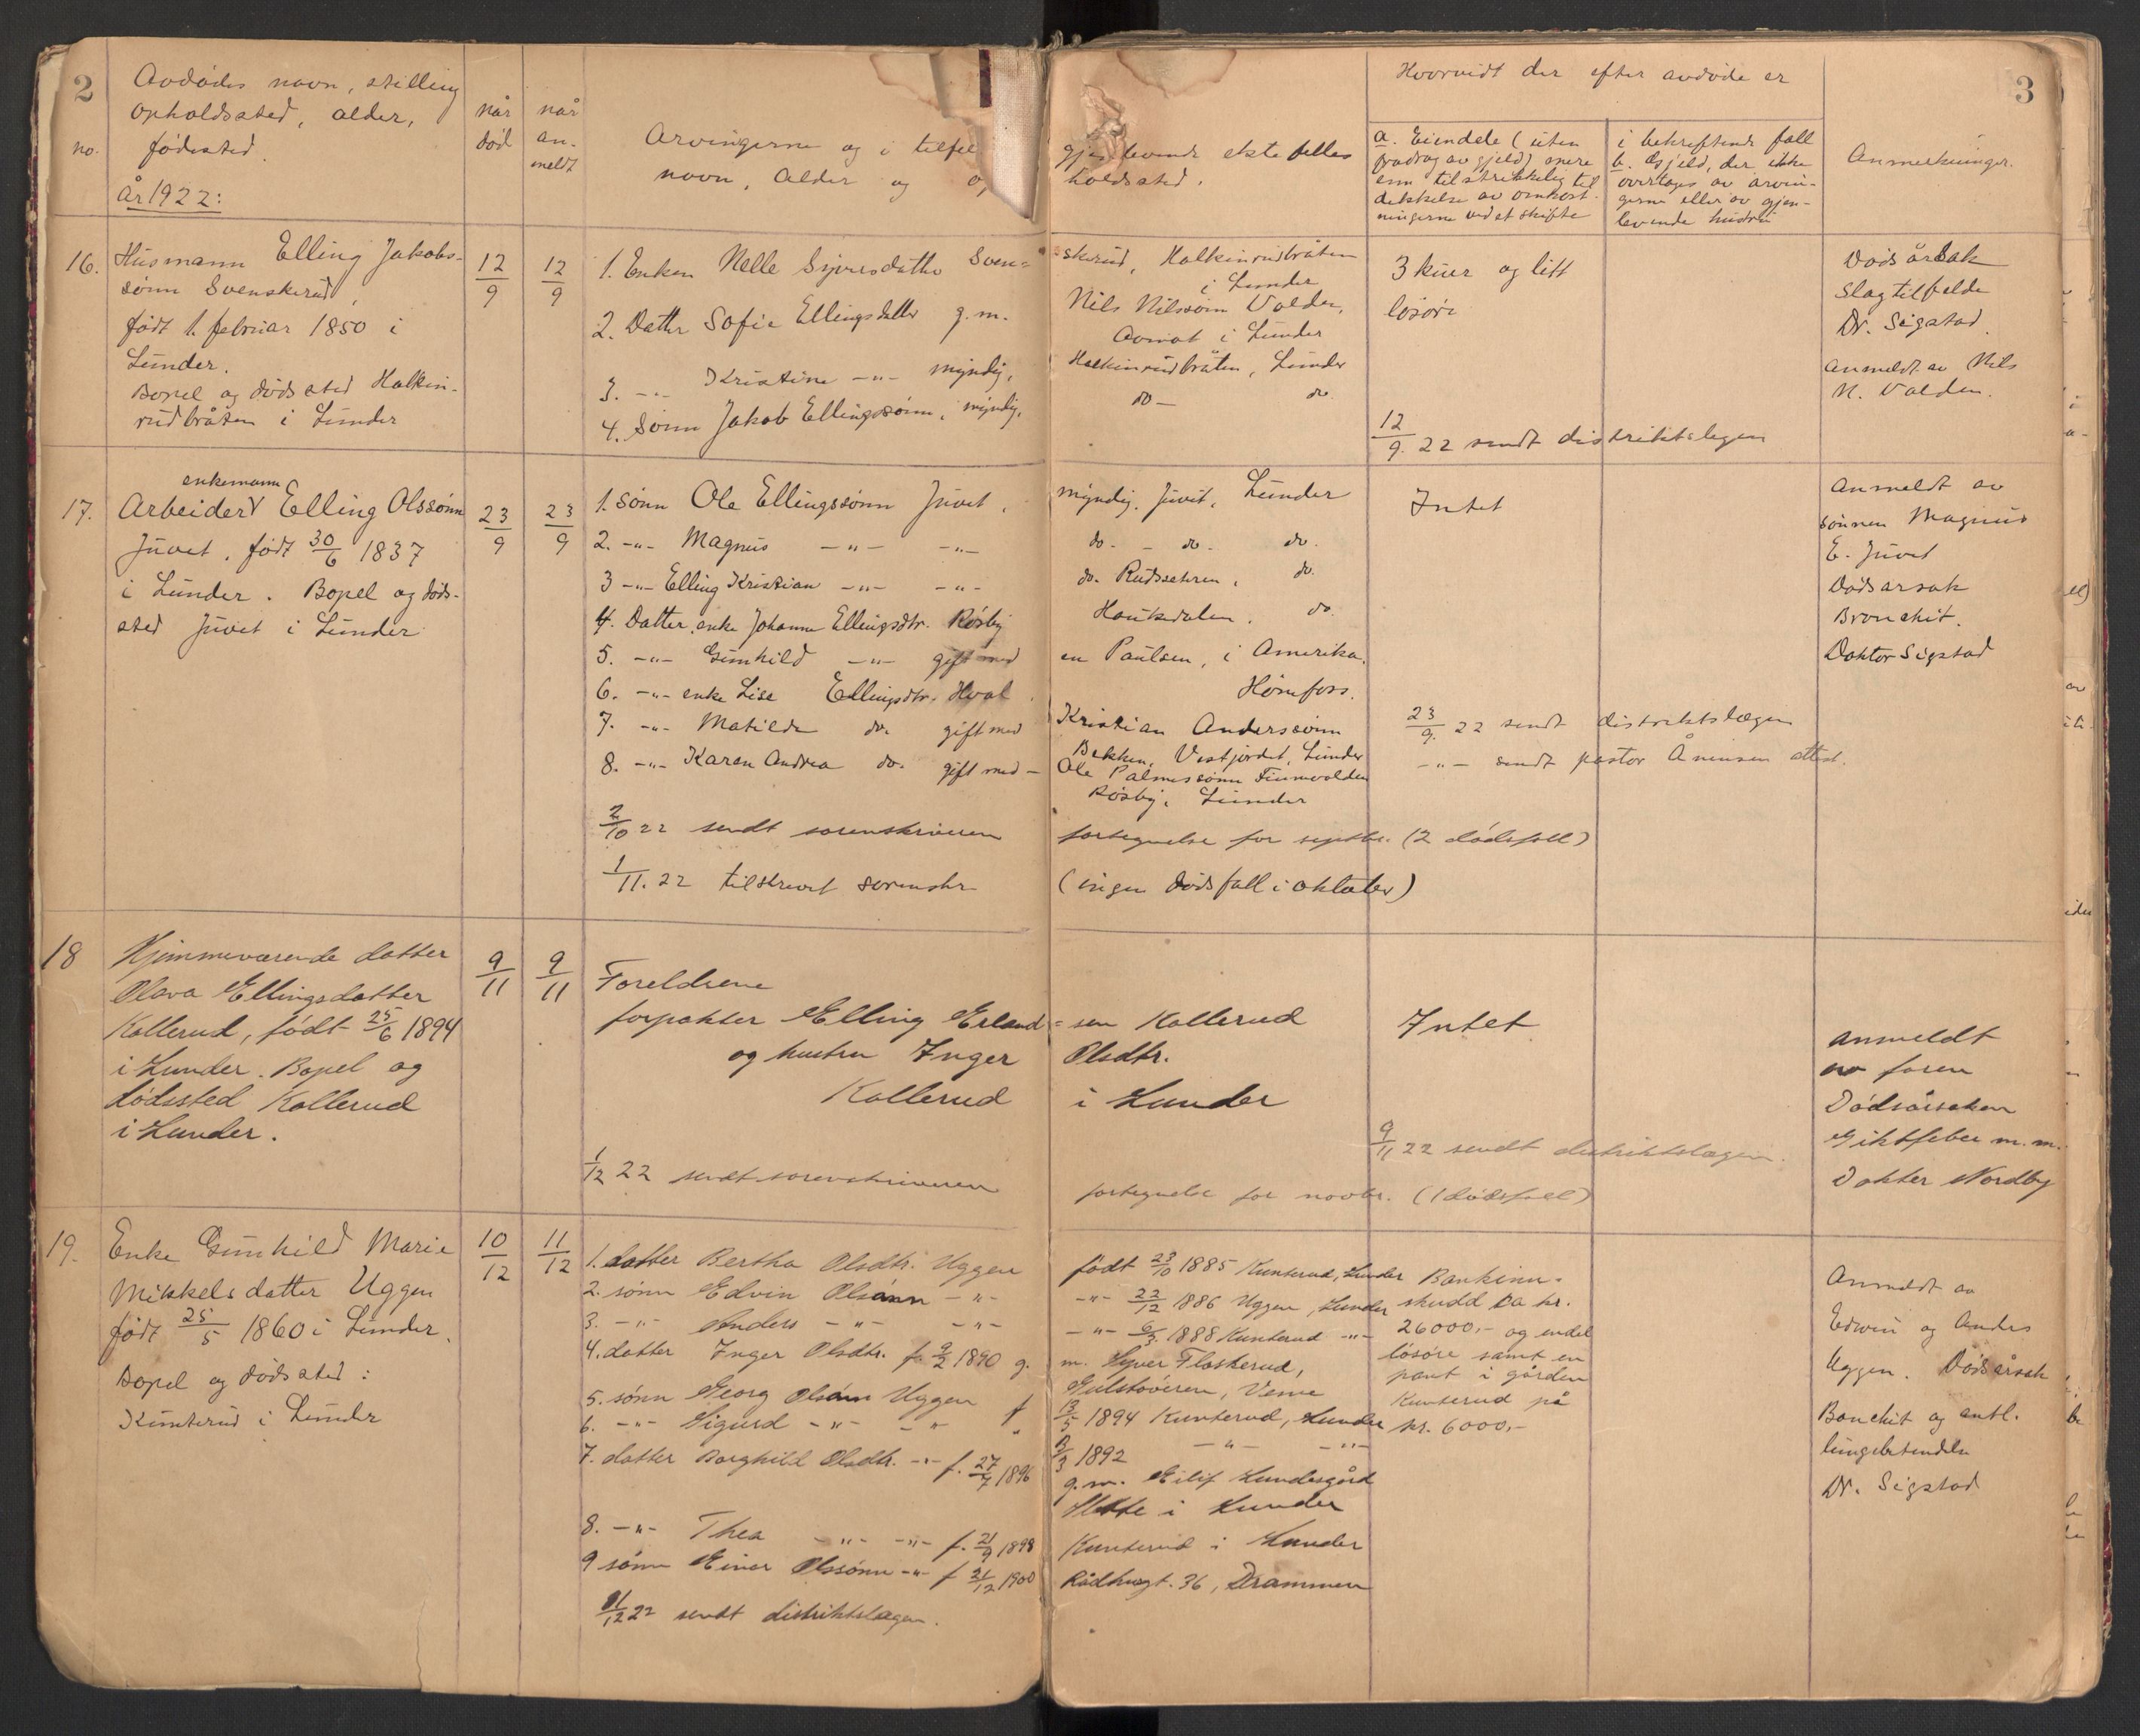 2
Avdødes navn, stilling
opholdssted, alder,
no. fødested.
År 1922:
når
død
når
an-
meldt
Arvingerne og i tilfel
navn, alder og
gjenlevende ektefelles
holdssted.
Hvorvidt der efter avdøde er
a. Eiendele (uten
fradrag av gjeld) mere
enn tilstrekkelig til
dekkelse av omkost-
ningerne ved et skifte
i bekreftende fall
b. Gjeld, der ikke
overtages av arvin-
gerne eller av gjen-
levende hustru
3
Anmerkninger.
16. Husmann Elling Jakobs-
sønn Svenskerud,
født 1. februar 1850 i
Lunder.
Bopel og dødssted Halkin-
rudbråten i Lunder
12/9
12/9
1. Enken Nelle Syversdatter Sven=
=skerud, Halkinrudbråten
i Lunder
2. Datter Sofie Ellingsdatter g.m.
Nils Nilssønn Valden,
i Lunder
3. -"- Kristine -"- myndig,
Halkinrudbråten, Lunder
4. Sønn Jakob Ellingssønn, myndig,
do - do
3 kuer og litt
løsøre
12/9. 22 sendt distriktslegen
Dødsårsak
slagtilfelde
Dr. Sigstad.
Anmeldt av Nils
N. Valden.
17. Arbeider enkemann Elling Olssønn
Juvet. født 30/6 1837
i Lunder. Bopel og døds-
sted Juvet i Lunder
23/9
23/9
1. sønn Ole Ellingssønn Juvet,
myndig. Juvet, Lunder
2. -"- Magnus -"- -"-
do. - do. do.
3 -"- Elling Kristian -"- -"-
do. Rudssetren, do.
4. Datter, enke Johanne Ellingsdtr. Røsby
Hauksdalen, do.
5. -"- Gunhild -"- gift med
en Paulsen, i Amerika.
6. -"- enke Lise Ellingsdtr. Hval
Hønefoss.
7. -"- Matilde do. gift med
Kristian Anderssønn
Bekken, Vestjordet, Lunder
8. -"- Karen Andrea do. gift med -
Ole Palmessønn Finnvolden
Røsby, Lunder
2/10 22 sendt sorenskriveren
fortegnelse for septbr. (2 dødsfall)
1/11. 22 tilskrevet sorenskr
(ingen dødsfall i oktober)
Intet
23/9. 22 sendt distriktslægen
-"- sendt pastor Ånensen attest.
Anmeldt av
sønnen Magnus
E. Juvet
Dødsarsak
Bronchit.
Doktor Sigstad
18 Hjemmeværende datter
Olava Ellingsdatter
Kollerud, født 25/6 1894
i Lunder. Bopel og
dødssted Kollerud
i Lunder.
9/11
9/11
Foreldrene
forpakter Elling Erland=sen Kollerud
og hustru Inger Olsdtr.
Kollerud i Lunder
1/12 22 sendt sorenskriveren
fortegnelse for novbr. (1 dødsfall)
Intet
9/11 22 sendt distriktslægen.
Anmeldt
av faren
Dødsårsaken
Giktfeber m.m.
Doktor Nordby
19. Enke Gunhild Marie
Mikkelsdatter Uggen
født 25/5 1860 i Lunder.
Bopel og dødssted:
Kunterud i Lunder
10/12
11/12
1. datter Bertha Olsdtr. Uggen
født 23/10 1885 Kunterud, Lunder
2. sønn Edvin Olsønn -"-
-"- 22/12 1886 Uggen, Lunder
3. -"- Anders -"- -"-
-"- 6/3 1888 Kunterud -"-
4. datter Inger Olsdtr. f. 9/2 1890 g.
m. Syver Flaskerud,
Veme
5. sønn Georg Olsønn Uggen f
13/5 1894 Kunterud, Lunder
6. -"- Sigurd -"- -"- "
1892 -"- -"-
7. datter Borghild Olsdtr. -"- f. 27/7 1896
g.m. Eilif Lundesgård
i Lunder
8. -"- Thea -"- -"- f. 21/9 1898
Kunterud i Lunder
9 sønn Einar Olssønn -"- f 21/12 1900
Rådhusgt. 36, Drammen
11/12 22 sendt distriktslægen.
Bankinn-
skudd ca kr.
26000,- og endel
løsøre samt en
pant i gården
Kunterud på
kr. 6000,-
Anmeldt av
Edwin og Anders
Uggen. Dødsårsak
Bonchit og antl.
lungebetendelse
Dr. Sigstad